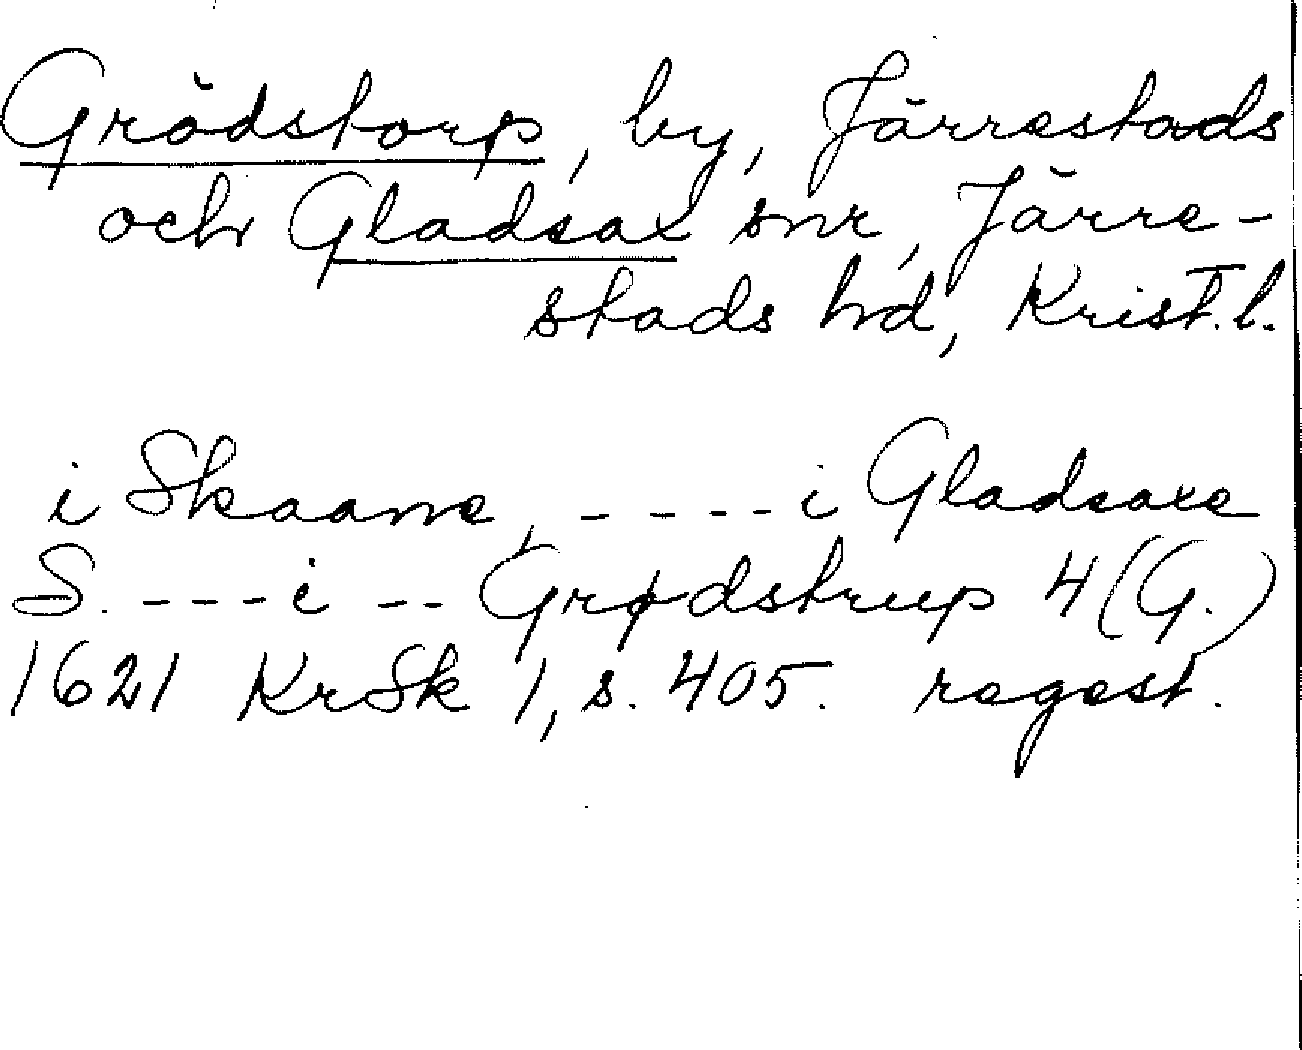 Grödstorp, by, Järrestads
och Gladsax snr, Järre-
stads hd, Krist. l.
i Skaane, ---- i Gladsaxe
S. --- i -- Grødstrup 4 (G.)
1621 KrSk 1, s. 405. regest.